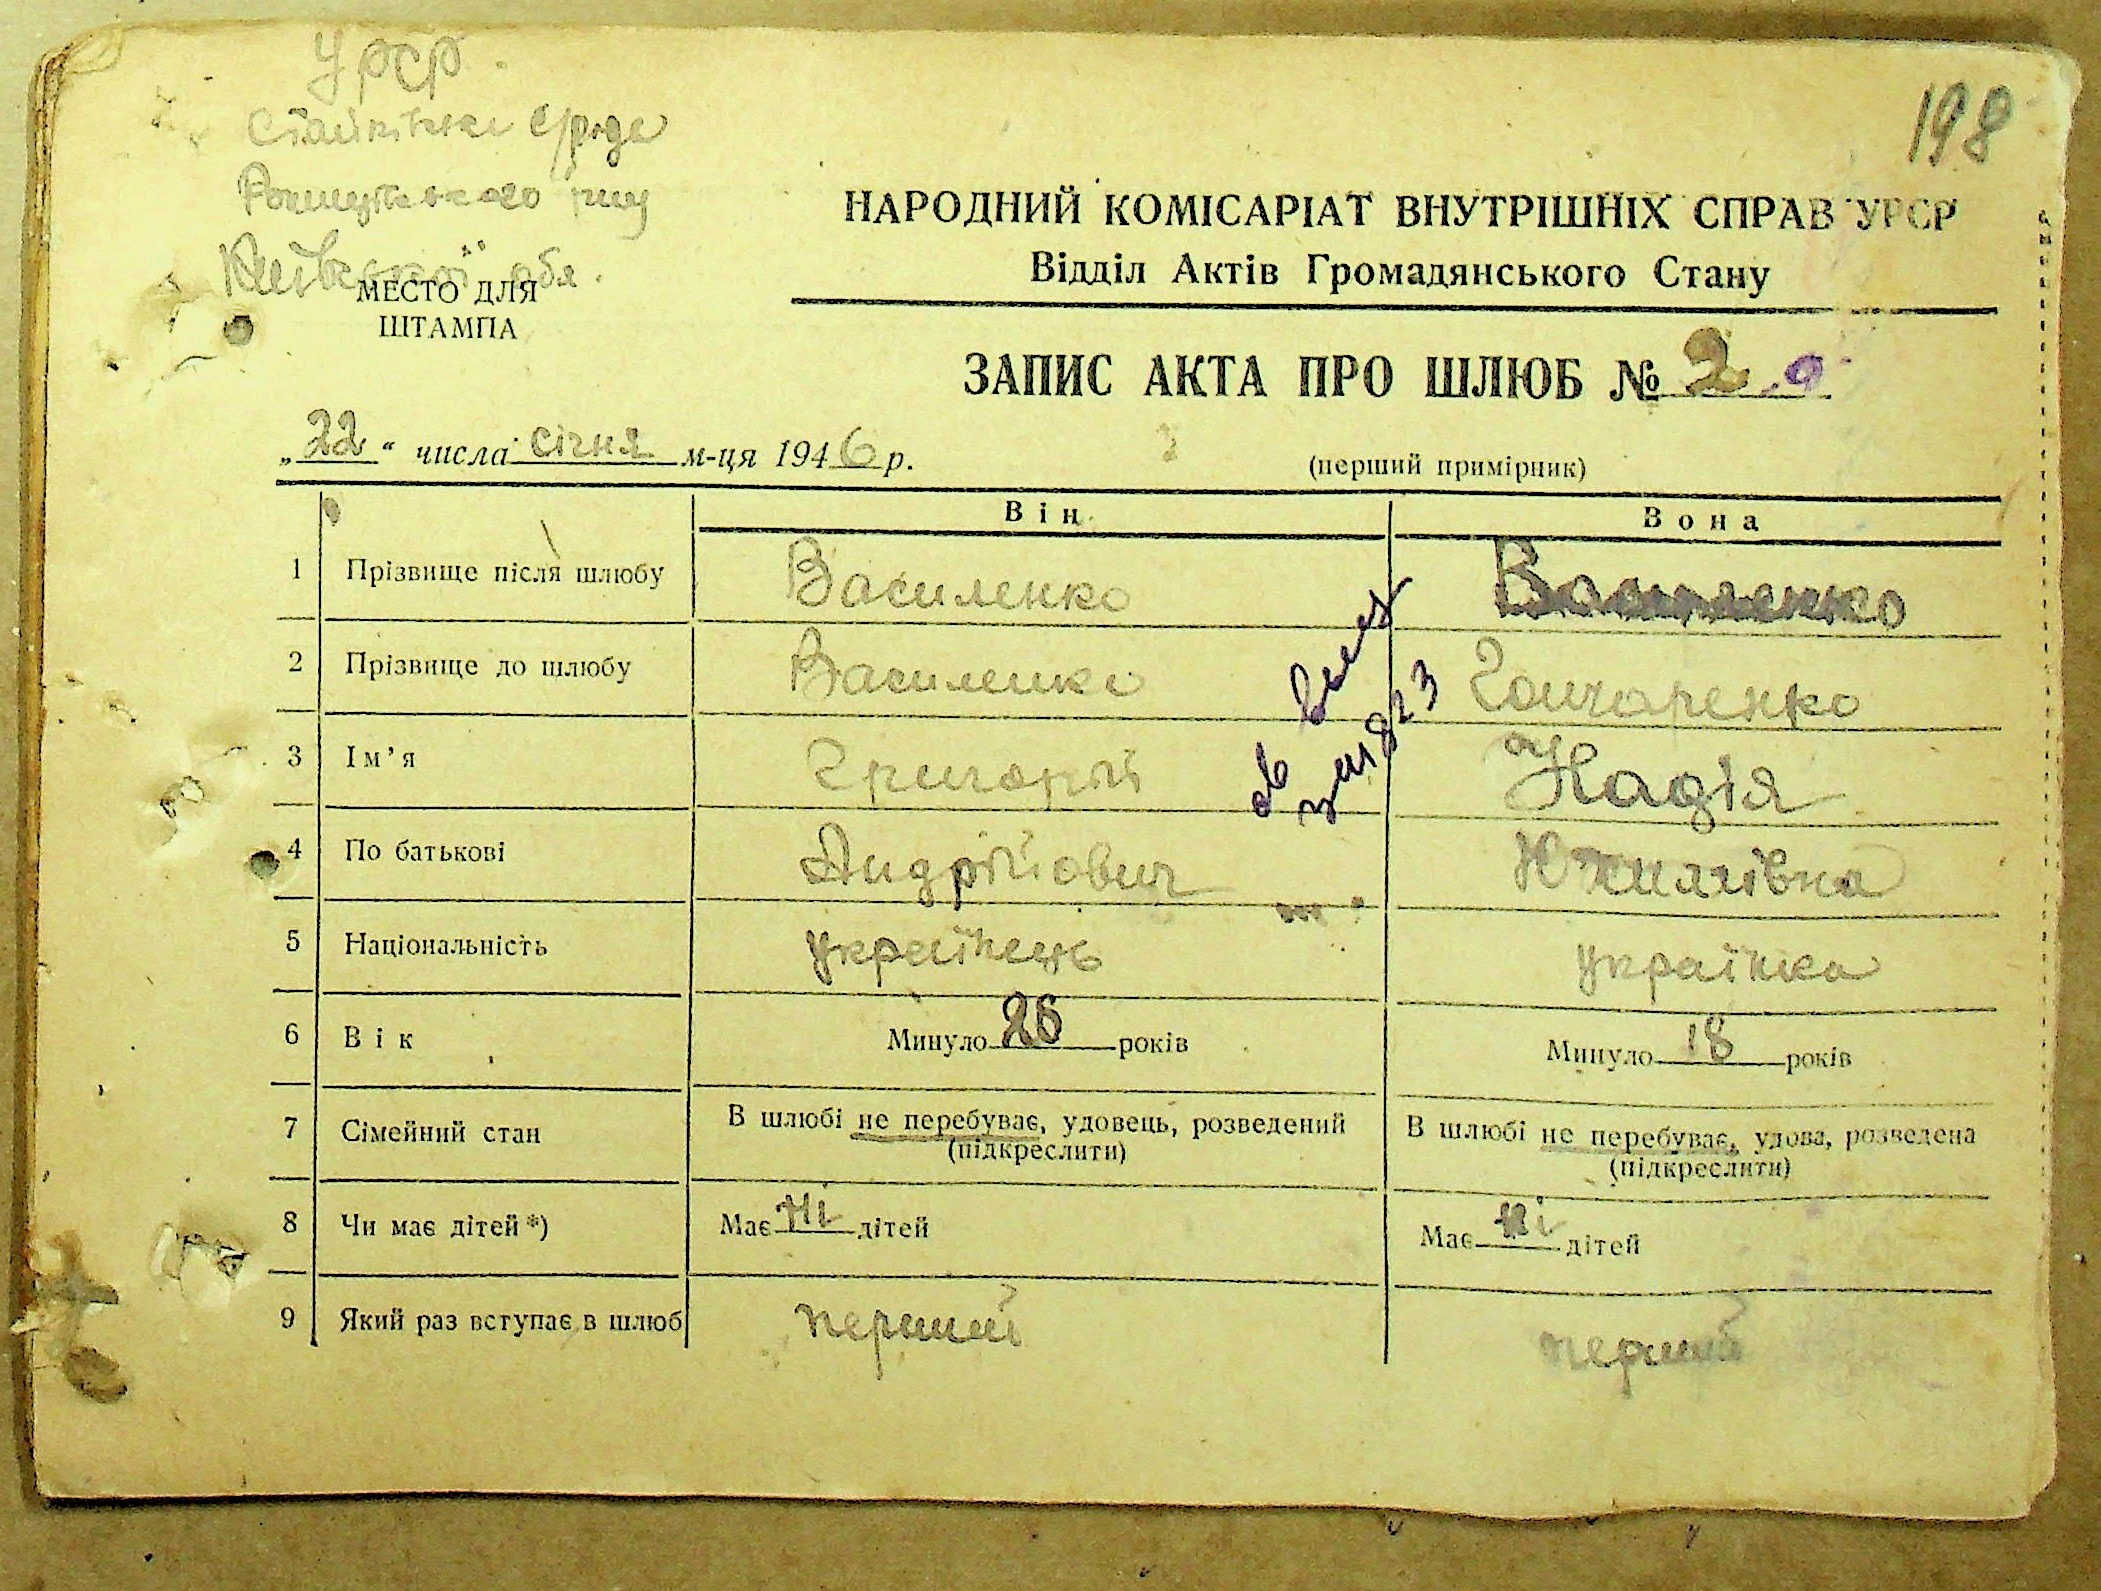 УРСР
198
Київської обл.
НАРОДНИЙ КОМІСАРІАТ ВНУТРІШНІХ СПРАВ УРСР
Відділ Актів Громадянського Стану
МЕСТО ДЛЯ
ШТАМПА
ЗАПИС АКТА ПРО ШЛЮБ № 2
„22“ числа січня м-ця 1946 р.
(перший примірник)
Він Вона
1 Прізвище після шлюбу Василенко Василенко
2 Прізвище до шлюбу Василенко Гончаренко
3 Ім’я Григорій Надія
4 По батькові Андрійович Юхимівна
5 Національність українець українка
6 Вік Минуло 26 років Минуло 18 років
7 Сімейний стан В шлюбі не перебуває, удовець, розведений В шлюбі не перебуває, удова, розведена
(підкреслити) (підкреслити)
8 Чи має дітей*) Має ні дітей Має ні дітей
9 Який раз вступає в шлюб перший перший